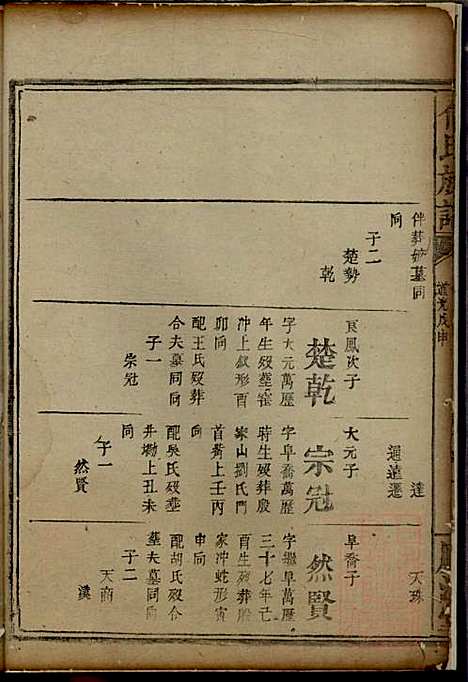 何氏族譜
道光戊申
伴葬敏墓同
向
子二
楚勢
乾
良鳳次子
楚乾
字大元萬歷
年生歿塟窰
冲上叙形酉
卯向
配王氏歿葬
合夫墓同向
子一
宗冠
達
遇遠邐
大元子
宗冠
字阜喬萬歷
時生歿葬殷
家山劉氏門
首崗上壬丙
向
配吳氏歿塟
井塝上丑未
向
子一
然賢
天珠
阜喬子
然賢
字繼阜萬歷
三十七年己
酉生歿葬胎
家冲蛇形寅
申向
配胡氏歿合
塟夫墓同向
子二
天爵
漢